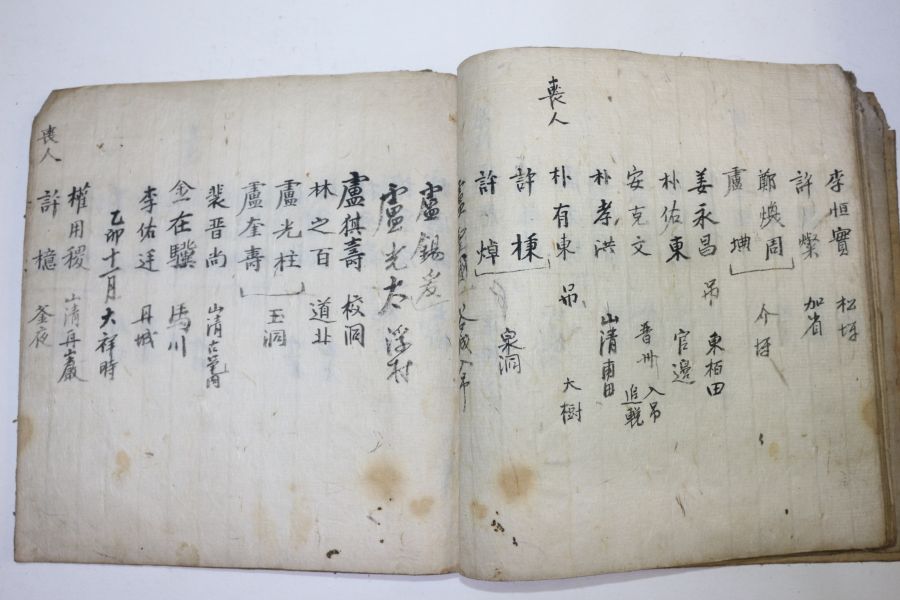 李恒寶 松坪
許燦 加省
鄭煥周 今坪
盧㙉
姜永昌 吊 東栢田
朴佑東 官邊
安克文 晋州 入吊 追輓
朴孝洪 山清 甫田
朴有東 吊 大樹
喪人
許棅 泉洞
許焯
入吊
盧錫
盧光太 浮村
盧祺壽 校洞
林之百 道北
盧光柱 玉洞
盧奎壽
裴晋尚 山清
金在驥 馬川
李佑廷 丹城
乙卯十一月大祥時
權用稷 山清丹巖
喪人
許檍 釜夜